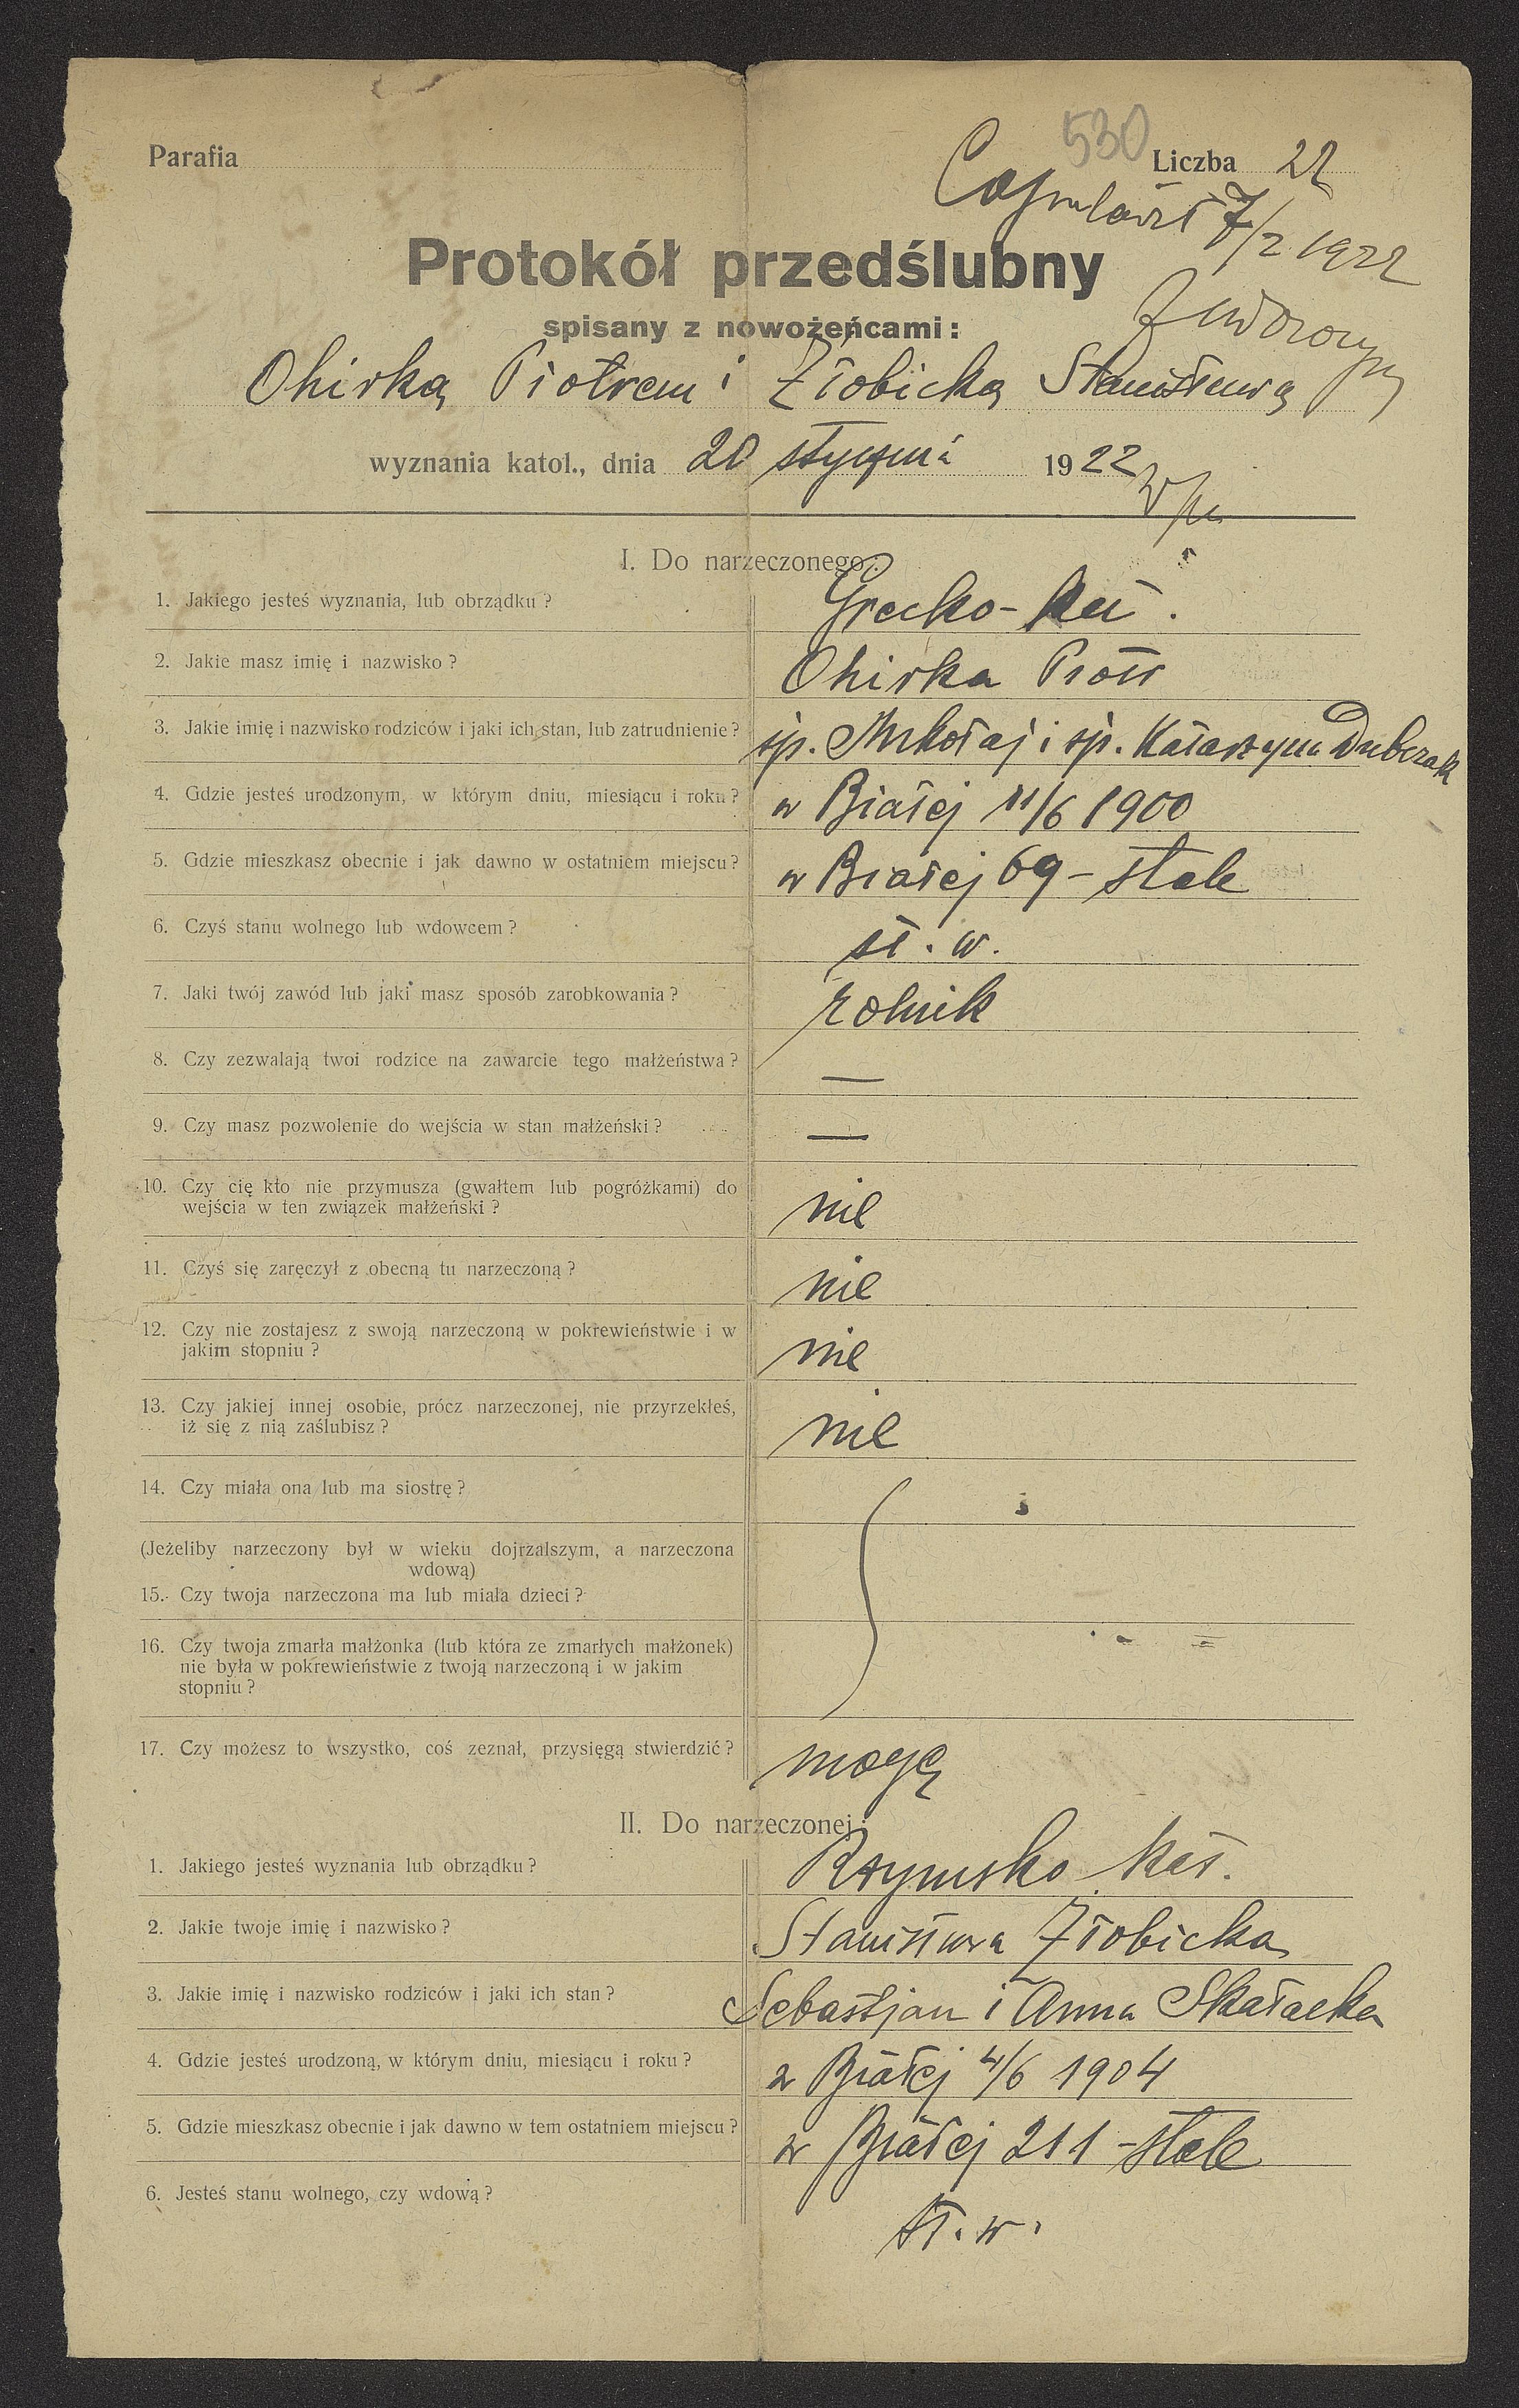 530
Parafia Liczba 22
7/2 1922
Protokół przedślubny
spisany z nowożeńcami:
Ohirką Piotrem i Złobicką Stanisławą
wyznania katol., dnia 20 stycznia 1922
I. Do narzeczonego:
1. Jakiego jesteś wyznania, lub obrządku? Grecko-kat.
2. Jakie masz imię i nazwisko? Ohirka Piotr
3. Jakie imię i nazwisko rodziców i jaki ich stan, lub zatrudnienie? śp. Mikołaj i śp. Katarzyna Dubczak
4. Gdzie jesteś urodzonym, w którym dniu, miesiącu i roku? w Białej 11/6 1900
5. Gdzie mieszkasz obecnie i jak dawno w ostatniem miejscu? w Białej 69 - stale
6. Czyś stanu wolnego lub wdowcem? st. w.
7. Jaki twój zawód lub jaki masz sposób zarobkowania? rolnik
8. Czy zezwalają twoi rodzice na zawarcie tego małżeństwa? —
9. Czy masz pozwolenie do wejścia w stan małżeński? —
10. Czy cię kto nie przymusza (gwałtem lub pogróżkami) do
wejścia w ten związek małżeński? nie
11. Czyś się zaręczył z obecną tu narzeczoną? nie
12. Czy nie zostajesz z swoją narzeczoną w pokrewieństwie i w
jakim stopniu? nie
13. Czy jakiej innej osobie, prócz narzeczonej, nie przyrzekłeś,
iż się z nią zaślubisz? nie
14. Czy miała ona lub ma siostrę?
(Jeżeliby narzeczony był w wieku dojrzalszym, a narzeczona
wdową)
15. Czy twoja narzeczona ma lub miała dzieci?
16. Czy twoja zmarła małżonka (lub która ze zmarłych małżonek)
nie była w pokrewieństwie z twoją narzeczoną i w jakim
stopniu?
17. Czy możesz to wszystko, coś zeznał, przysięgą stwierdzić? mogę
II. Do narzeczonej:
1. Jakiego jesteś wyznania lub obrządku? Rzymsko kat.
2. Jakie twoje imię i nazwisko? Stanisława Złobicka
3. Jakie imię i nazwisko rodziców i jaki ich stan? Sebastjan i Anna Skałacka
4. Gdzie jesteś urodzoną, w którym dniu, miesiącu i roku? w Białej 4/6 1904
5. Gdzie mieszkasz obecnie i jak dawno w tem ostatniem miejscu? w Białej 211 - stale
6. Jesteś stanu wolnego, czy wdową? st. w.